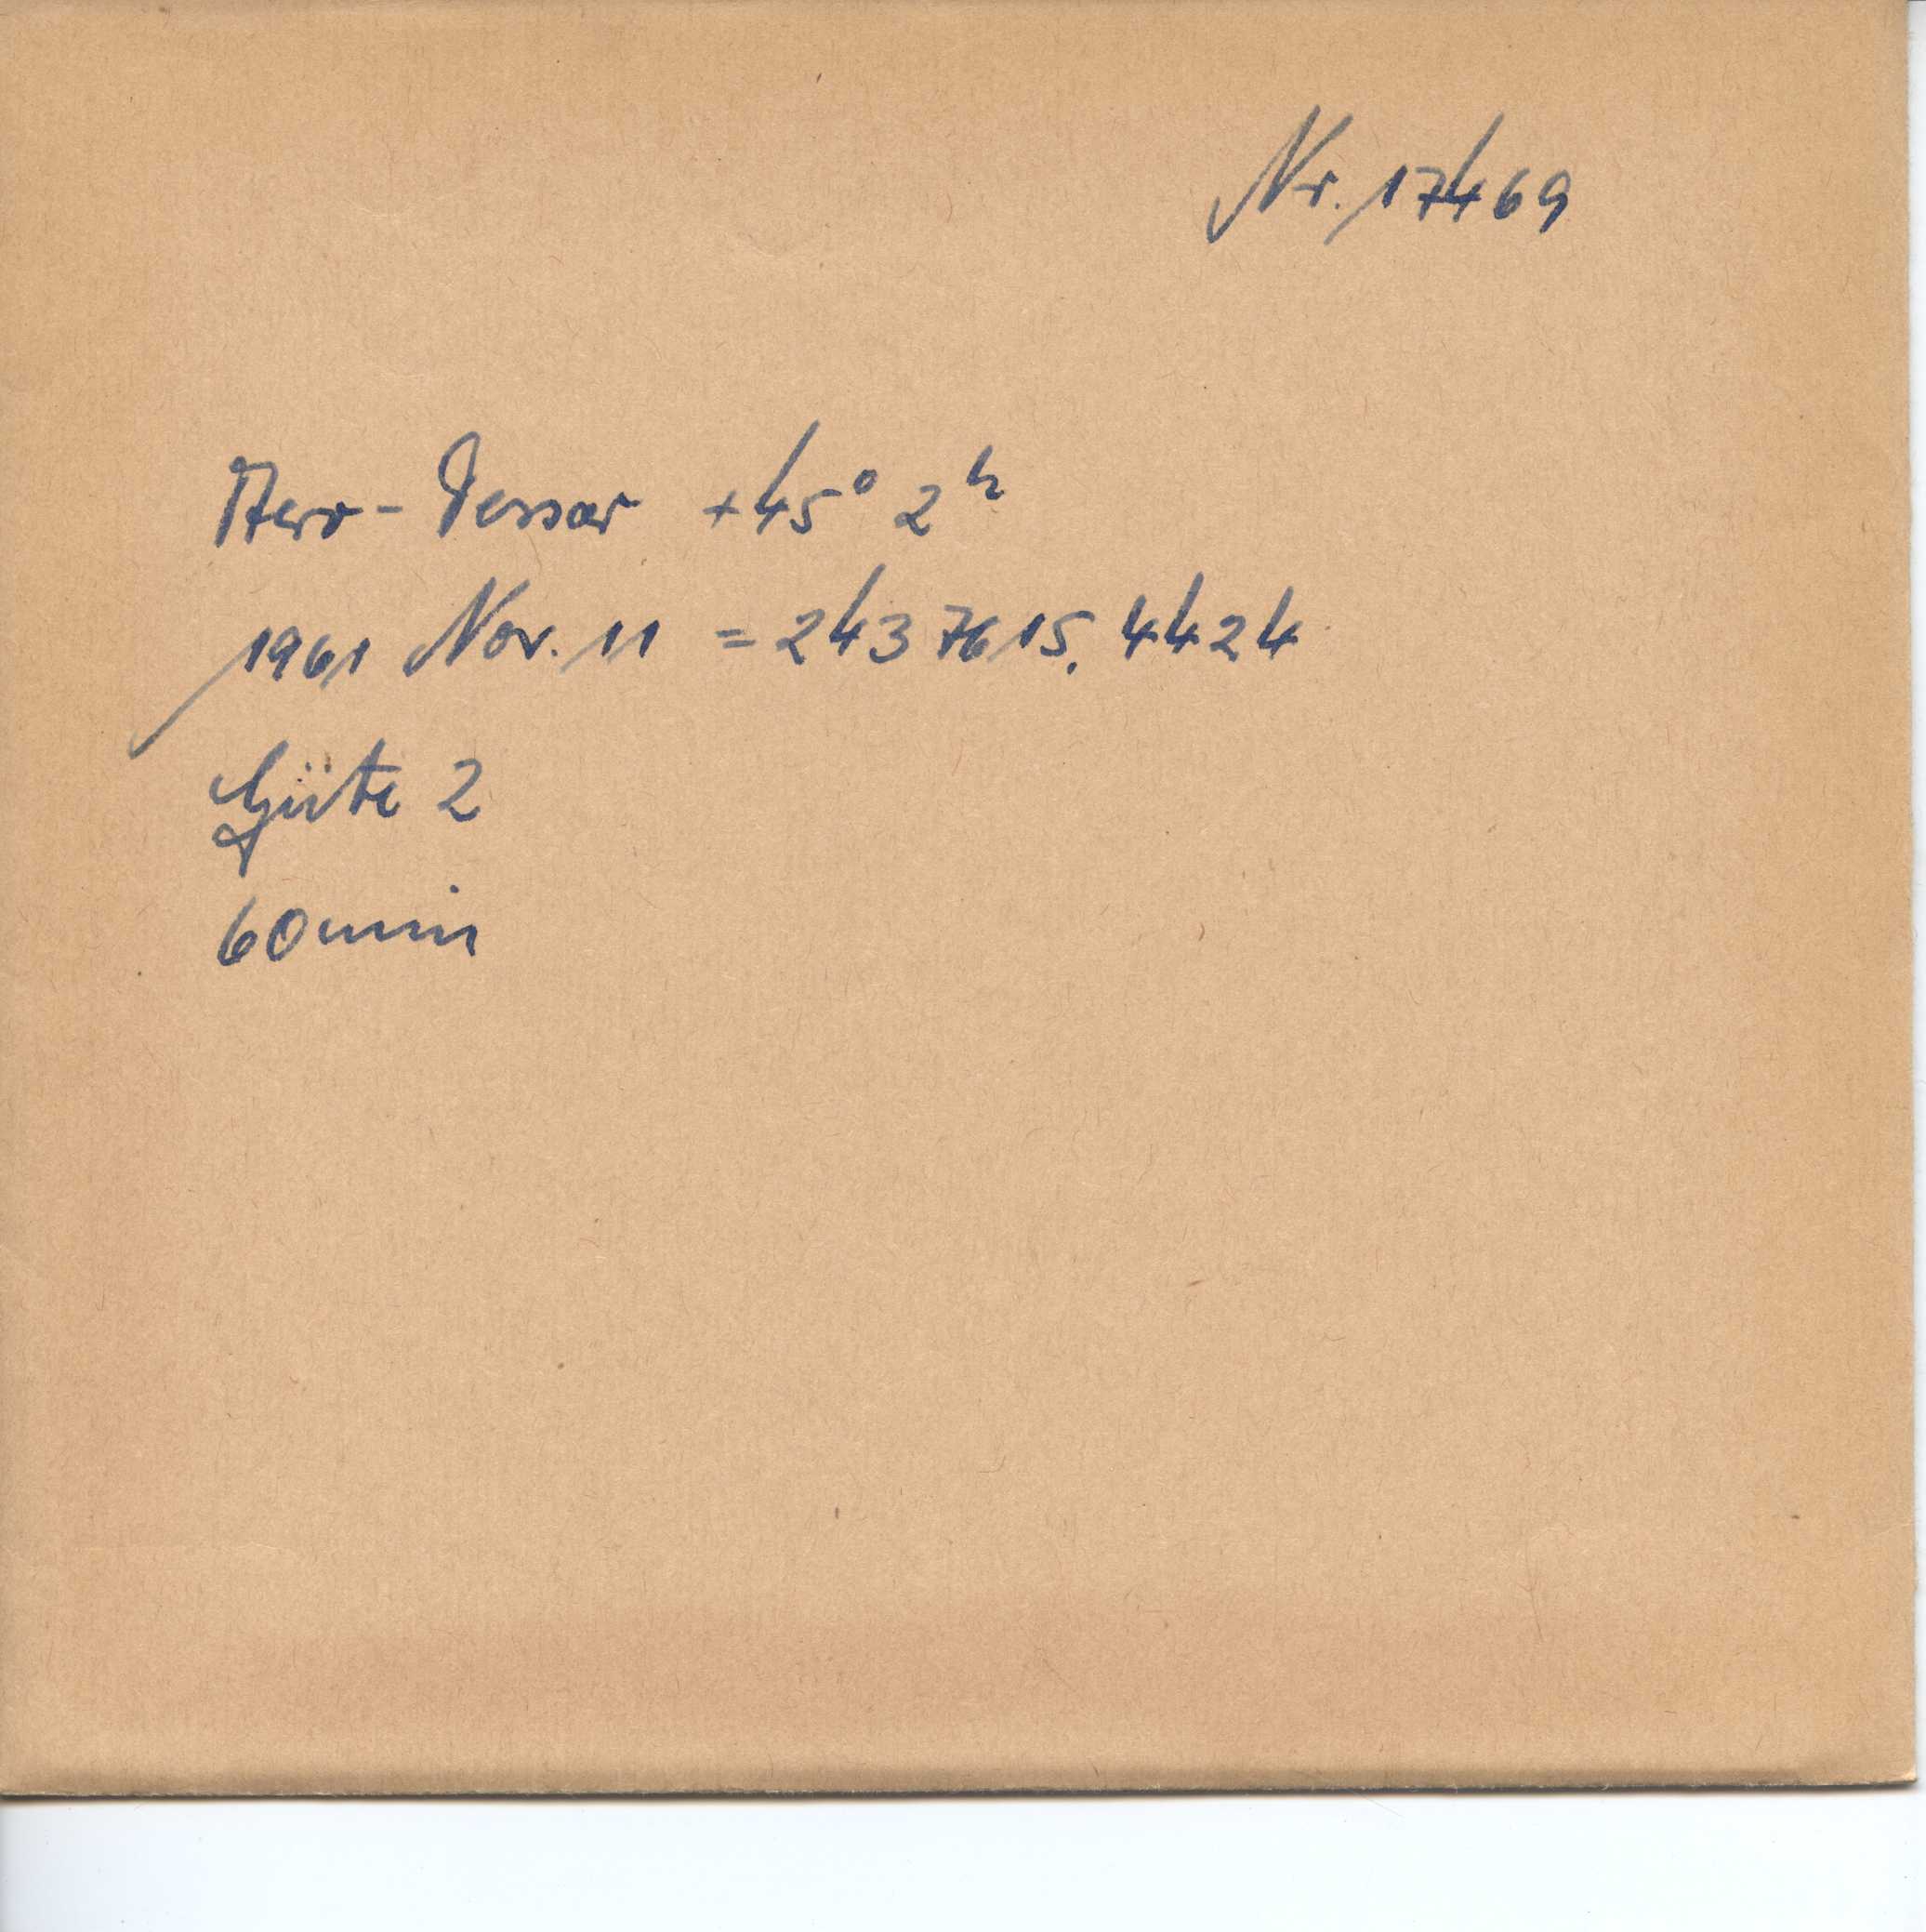 Nr. 17469
Aero-Tessar +45° 2ʰ
1961 Nov. 11 = 243 7615.4424
Güte 2
60 min